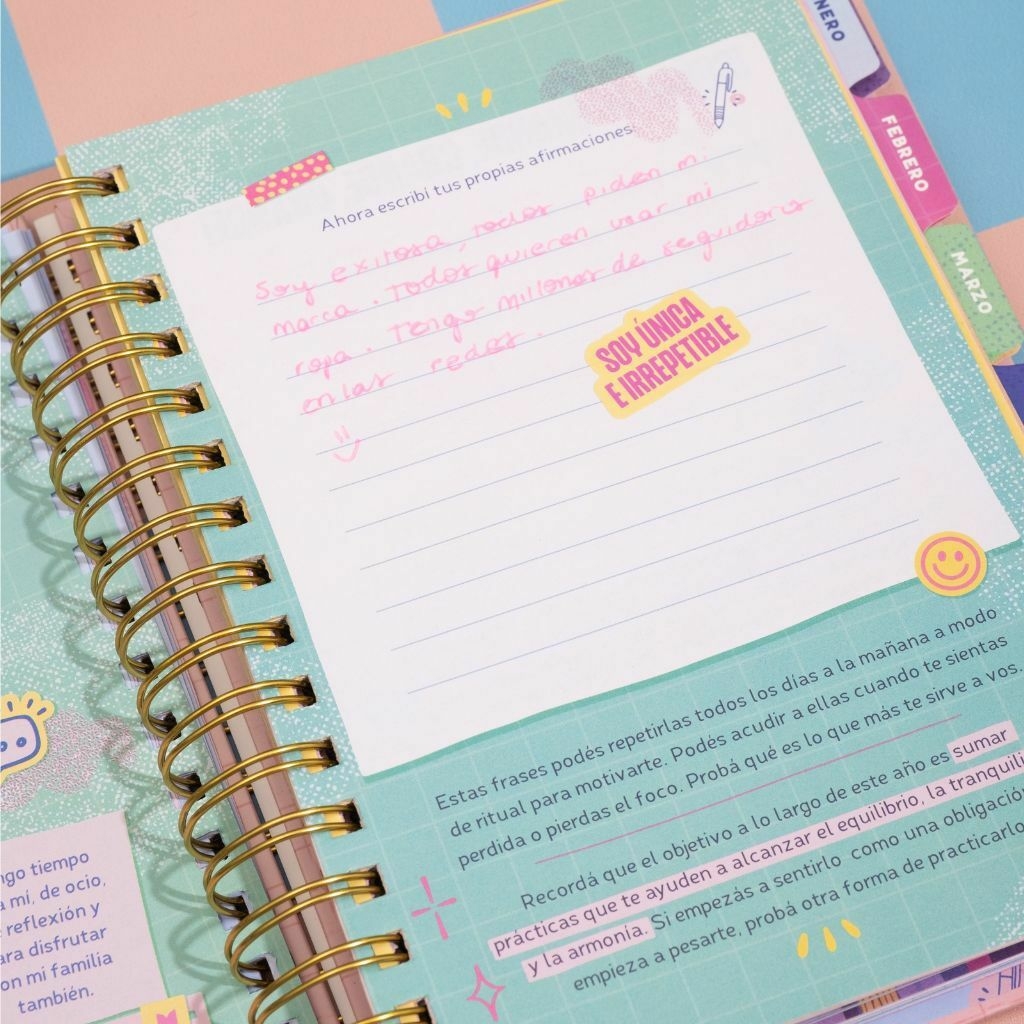 NERO
FEBRERO
MARZO
Ahora escribí tus propias afirmaciones
Soy exitosa, todos piden mi
marca. Todos quieren usar mi
ropa. Tengo millones de seguidores
en las redes.
SOY ÚNICA
E IRREPETIBLE
Estas frases podés repetirlas todos los días a la mañana a modo
de ritual para motivarte. Podés acudir a ellas cuando te sientas
perdida o pierdas el foco. Probá qué es lo que más te sirve a vos.
Recordá que el objetivo a lo largo de este año es sumar
prácticas que te ayuden a alcanzar el equilibrio, la tranquili
y la armonía. Si empezás a sentirlo como una obligación
empieza a pesarte, probá otra forma de practicarlo
ngo tiempo
a mí, de ocio,
reflexión y
ara disfrutar
on mi familia
también.